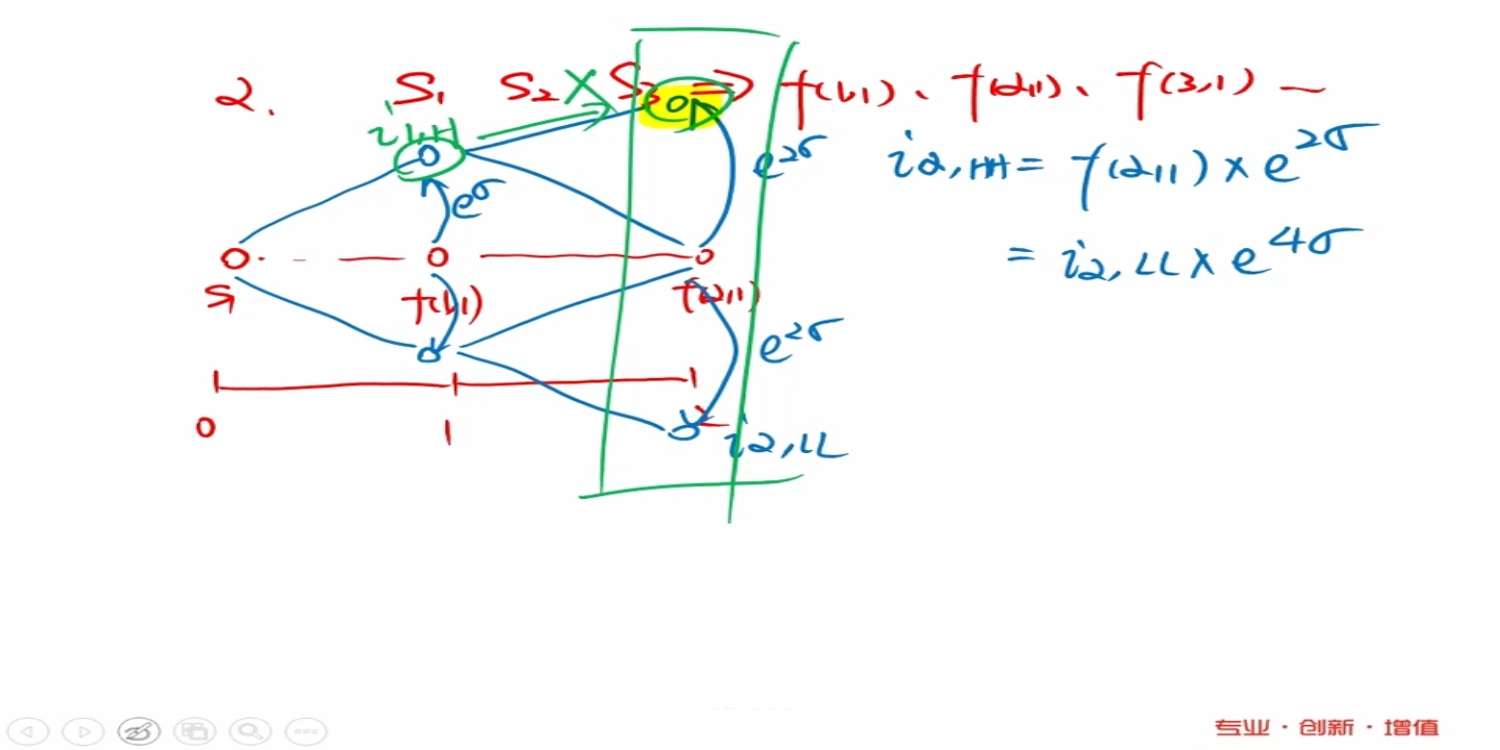 2. S₁ S₂ S₃ ⇒ f(1,1)、f(2,1)、f(3,1) ~
i1,H
e^σ
e^2σ
i2,HH = f(2,1) × e^2σ
= i2,LL × e^4σ
S₁
f(1,1)
f(2,1)
e^2σ
0 1 2
i2,LL
专业 · 创新 · 增值